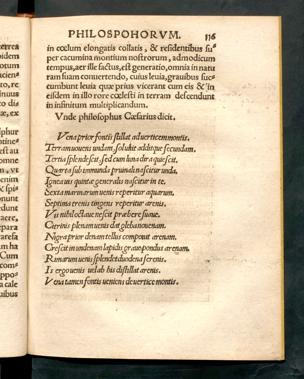 PHILOSPOHORVM. 136
in cœlum elongatis collatis, & residentibus su"
per cacumina montium nostrorum, admodicum
tempus, aer ille factus, est generatio, omnia in natu
ram suam conuertendo, cuius leuia, grauibus suc=
cumbunt leuia quæ prius vicerant cum eis & in
eisdem in illo rore cœlesti in terram descendunt
in infinitum multiplicandum.
Vnde philosophus Cæsarius dicit.
Vena prior fontis stillat aduertice montis.
Terram uouens undam, soluit additque secundam.
Tertia splendescit, sed cum luna dira quiescit.
Quarta sub immunda pruinda nascitur unda.
Ignea uis quintæ generalis nascitur in te.
Sexta marmarum uenis reperitur aquarum.
Septima trenis tingens reperitur arenis.
Vis nihil octaue nescit præbere suaue.
Citrinis plenam uenis dat gleba nouenam.
Nigra prior denam tellus componit arenam.
Crescit in undenam lapidis graue pondus arenam.
Rimarum uenis splendet duodena serenis.
Is ergo uenis uelab his distillat arenis.
Vena tamen fontis ueniens de vertice montis.